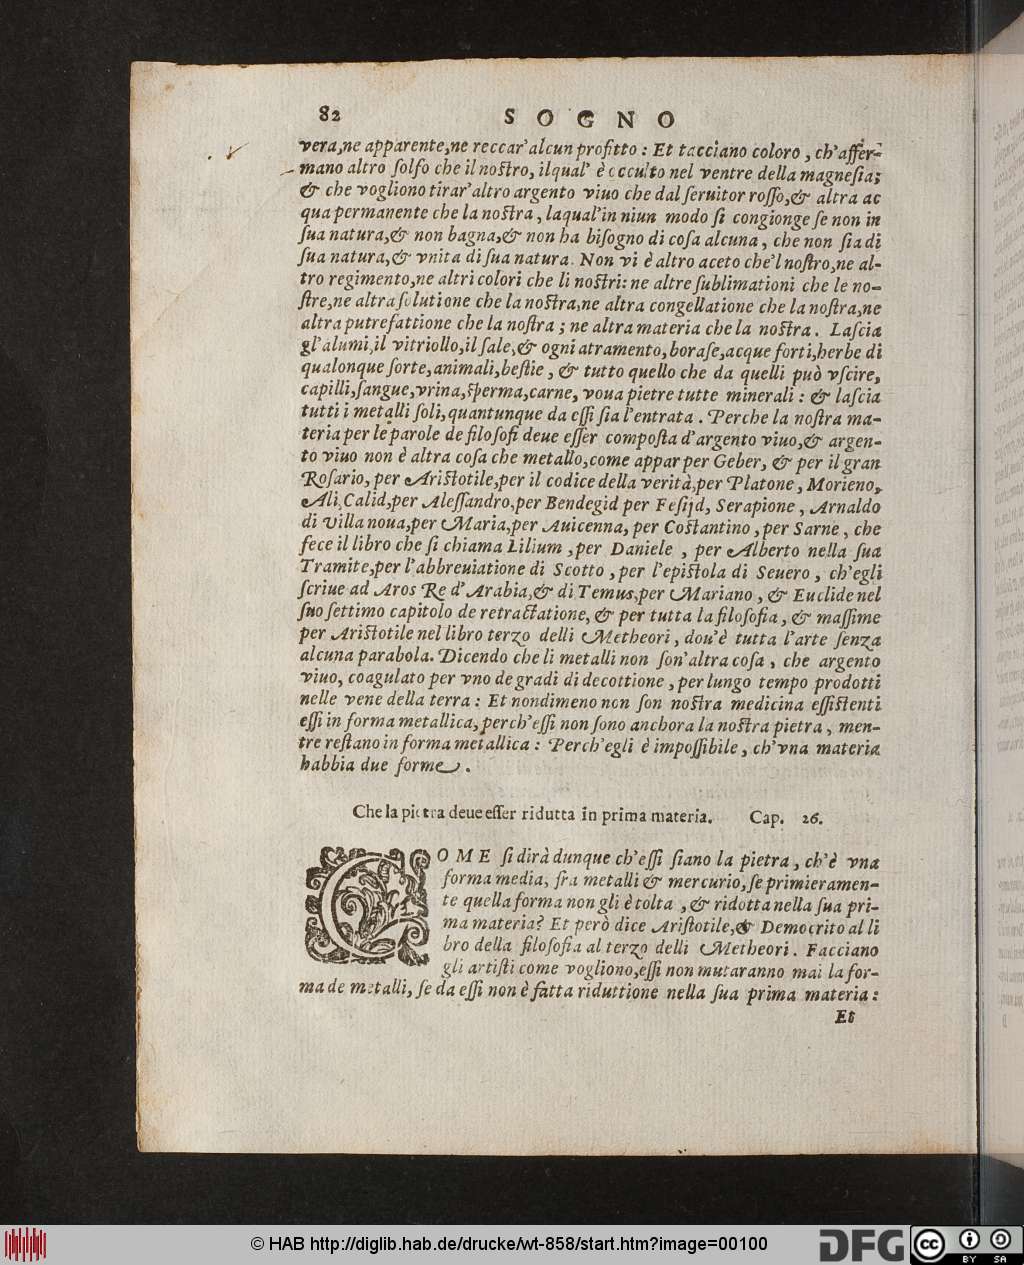 82 SOGNO
vera,ne apparente,ne reccar'alcun profitto : Et tacciano coloro , ch'affer-
mano altro solfo che il nostro, ilqual' è occulto nel ventre della magnesia;
& che vogliono tirar'altro argento viuo che dal seruitor rosso,& altra ac
qua permanente che la nostra , laqual'in niun modo si congionge se non in
sua natura,& non bagna,& non ha bisogno di cosa alcuna , che non sia di
sua natura,& vnita di sua natura. Non vi è altro aceto che'l nostro,ne al-
tro regimento,ne altri colori che li nostri: ne altre sublimationi che le no-
stre,ne altra solutione che la nostra,ne altra congellatione che la nostra,ne
altra putrefattione che la nostra ; ne altra materia che la nostra . Lascia
gl'alumi,il vitriollo,il sale,& ogni atramento,borase,acque forti,herbe di
qualonque sorte,animali,bestie , & tutto quello che da quelli può vscire,
capilli,sangue,vrina,sperma,carne, voua pietre tutte minerali : & lascia
tutti i metalli soli,quantunque da essi sia l'entrata . Perche la nostra ma-
teria per le parole de filosofi deue esser composta d'argento viuo,& argen-
to viuo non è altra cosa che metallo,come appar per Geber, & per il gran
Rosario, per Aristotile,per il codice della verità,per Platone , Morieno,
Ali,Calid,per Alessandro,per Bendegid per Fesijd, Serapione , Arnaldo
di Villa noua,per Maria,per Auicenna, per Costantino , per Sarne , che
fece il libro che si chiama Lilium ,per Daniele , per Alberto nella sua
Tramite,per l'abbreuiatione di Scotto , per l'epistola di Seuero , ch'egli
scriue ad Aros Re d'Arabia,& di Temus,per Mariano , & Euclide nel
suo settimo capitolo de retractatione, & per tutta la filosofia , & massime
per Aristotile nel libro terzo delli Metheori , dou'è tutta l'arte senza
alcuna parabola. Dicendo che li metalli non son'altra cosa , che argento
viuo, coagulato per vno de gradi di decottione , per lungo tempo prodotti
nelle vene della terra : Et nondimeno non son nostra medicina essistenti
essi in forma metallica, perch'essi non sono anchora la nostra pietra , men-
tre restano in forma metallica : Perch'egli è impossibile , ch'vna materia
habbia due forme .
Che la pietra deue esser ridutta in prima materia. Cap. 26.
COME si dirà dunque ch'essi siano la pietra , ch'è vna
forma media, fra metalli & mercurio, se primieramen-
te quella forma non gli è tolta , & ridotta nella sua pri-
ma materia? Et però dice Aristotile,& Democrito al li
bro della filosofia al terzo delli Metheori . Facciano
gli artisti come vogliono,essi non mutaranno mai la for-
ma de metalli, se da essi non è fatta riduttione nella sua prima materia :
Et
© HAB http://diglib.hab.de/drucke/wt-858/start.htm?image=00100
DFG
cc BY SA